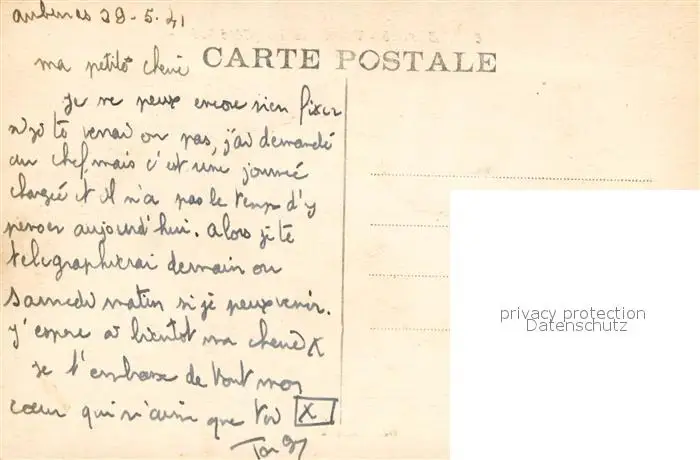 aubenas 29-5-41
CARTE POSTALE
ma petite cheri
je ne peux encore rien fixer
si je te verrai ou pas, j'ai demandé
au chef, mais c'est une journée
chargée et il n'a pas le temps d'y
penser aujourd'hui. alors je te
telegraphierai demain ou
samedi matin si je peux venir.
j'espere a bientot ma cherie X
je t'embrasse de tout mon
coeur qui n'aime que toi X
privacy protection
Datenschutz